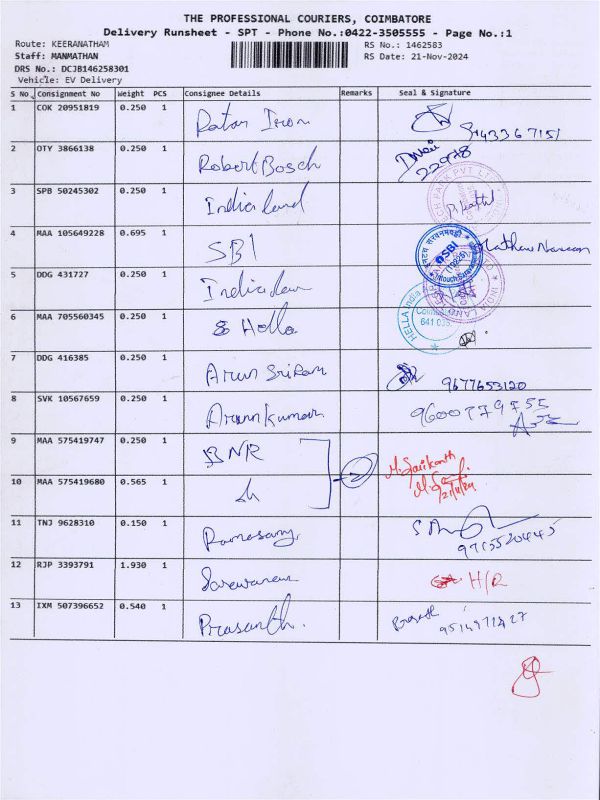 THE PROFESSIONAL COURIERS, COIMBATORE
Delivery Runsheet - SPT - Phone No.:0422-3505555 - Page No.:1
Route: KEERANATHAM RS No.: 1462583
Staff: MANMATHAN RS Date: 21-Nov-2024
DRS No.: DCJB146258301
Vehicle: EV Delivery
S No. Consignment No Weight PCS Consignee Details Remarks Seal & Signature
1 COK 20951819 0.250 1 Ratan Iron
2 OTY 3866138 0.250 1 Robert Bosch 22978
3 SPB 50245302 0.250 1 India land
4 MAA 105649228 0.695 1 SBI SBI
5 DDG 431727 0.250 1 India lan
6 MAA 705560345 0.250 1 Hella HELLA India 641 035
7 DDG 416385 0.250 1 Arun Sriram 9677653120
8 SVK 10567659 0.250 1 Arunkumar 9600779755
9 MAA 575419747 0.250 1 BNR M. Srikanth
10 MAA 575419680 0.565 1 21/11/24
11 TNJ 9628310 0.150 1 Ramasamy 9715520445
12 RJP 3393791 1.930 1 Saravanan H/R
13 IXM 507396652 0.540 1 Prasanth. 9514971427